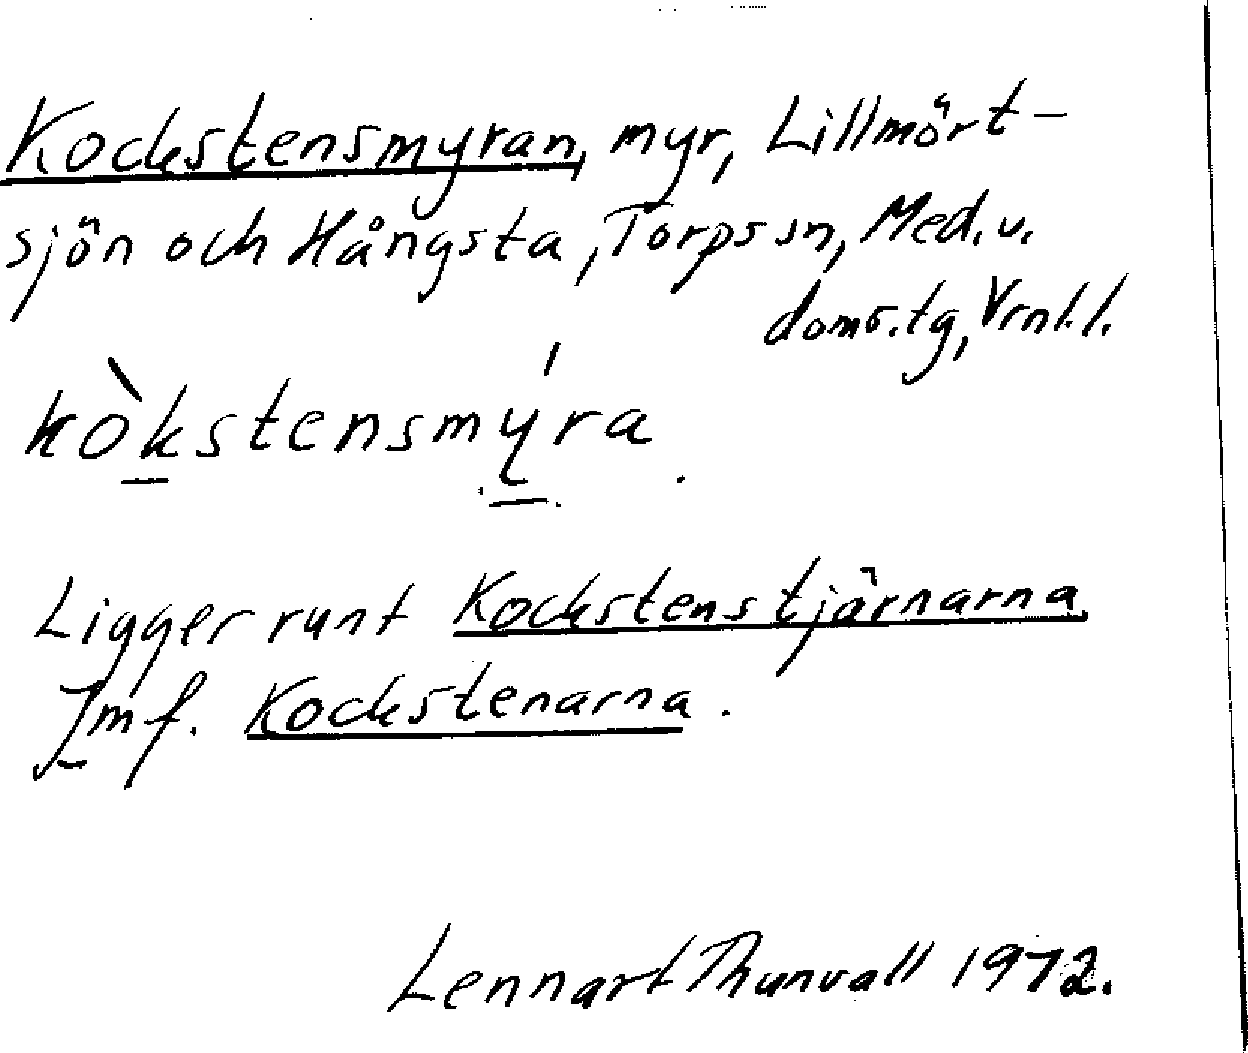 Kockstensmyran, myr, Lillmört-
sjön och Hångsta, Torps sn, Med.v.
doms.tg, Vrnl.l.
kòkstensmýra.
Ligger runt Kockstenstjärnarna.
Jmf. Kockstenarna.
Lennart Thunvall 1972.